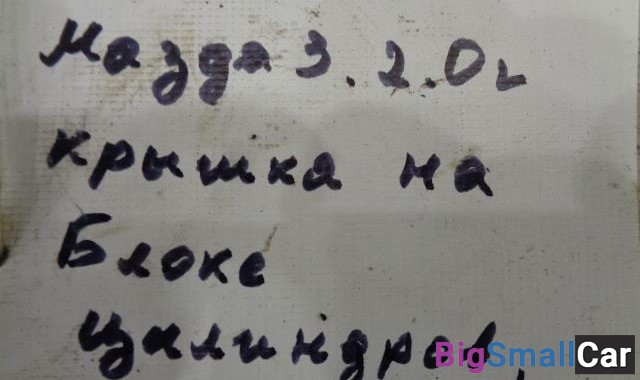 Мазда 3. 2.0L
крышка на
Блоке
цилиндра
BigSmallCar